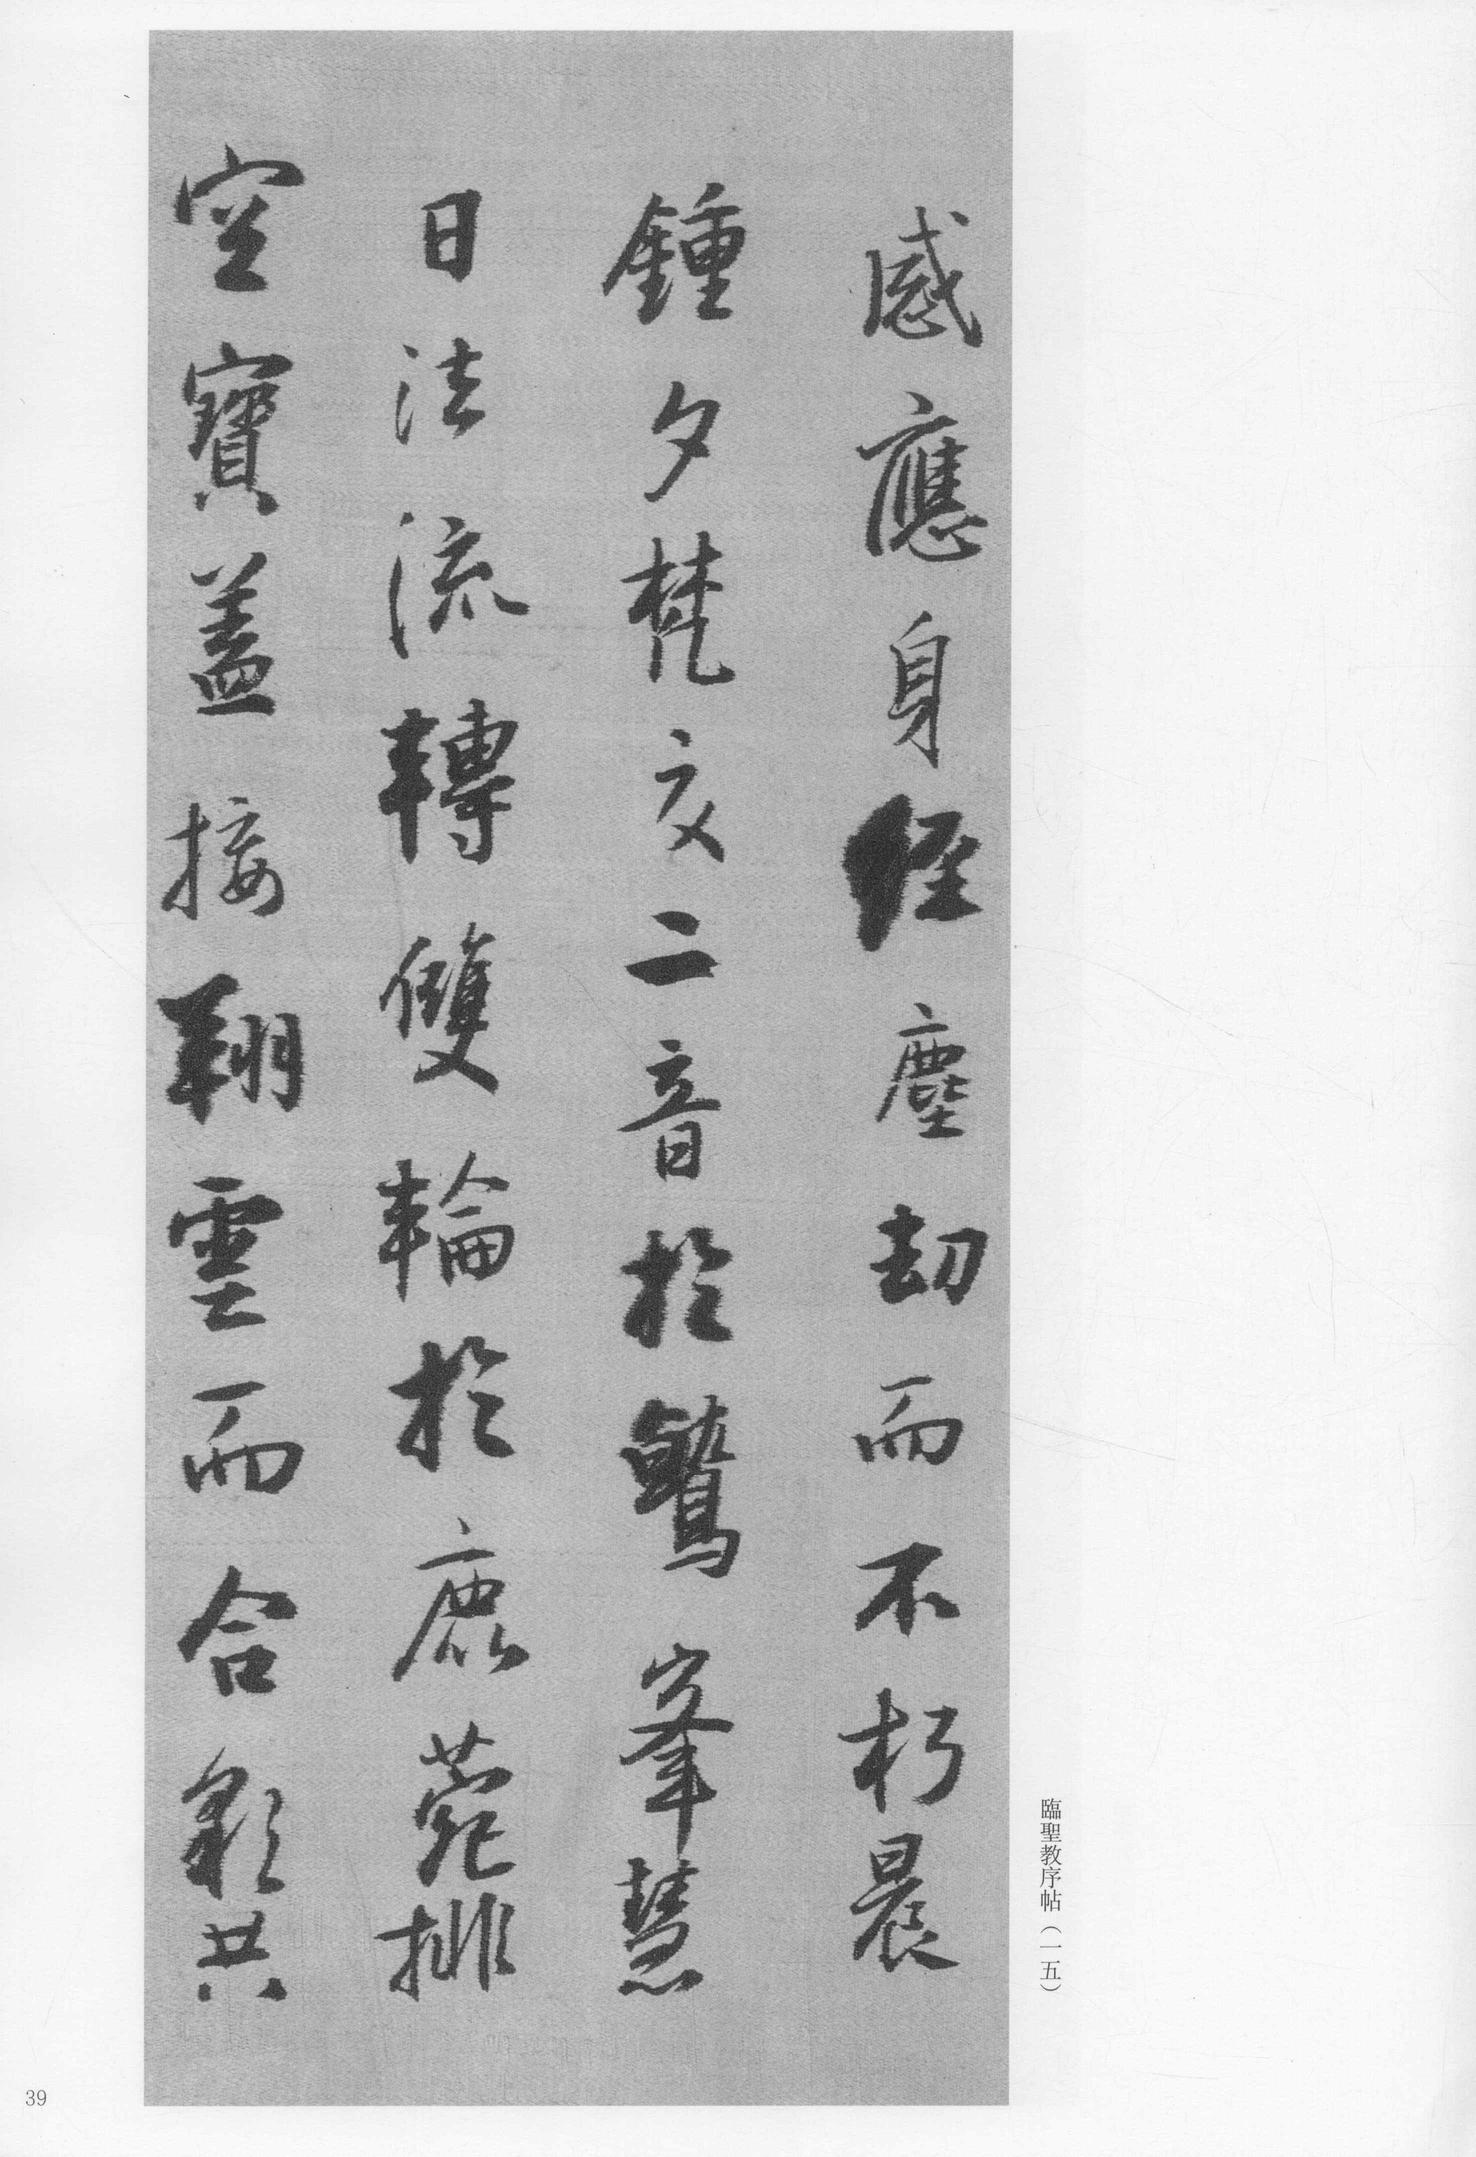 感應身經塵劫而不朽晨
鍾夕梵交二音於鷲峯慧
日法流轉雙輪於鹿菀排
空寶蓋接翔雲而合彩共
臨聖教序帖（一五）
39